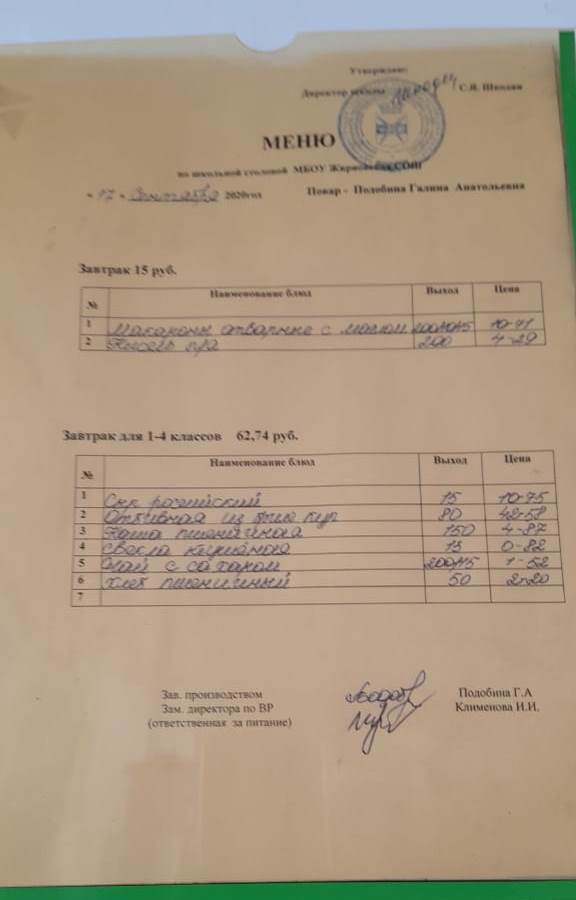 Утверждаю:
Директор школы С.Я. Шкодин
МЕНЮ
по школьной столовой МБОУ СОШ
« 17 » Сентября 2020год Повар - Подобина Галина Анатольевна
Завтрак 15 руб.
№ Наименование блюд Выход Цена
1 Макароны отварные с маслом 200/10/5 10-71
2 Кисель п/я 200 4-29
Завтрак для 1-4 классов 62,74 руб.
№ Наименование блюд Выход Цена
1 Сыр российский 15 10-75
2 Отбивная из филе кур 80 42-58
3 Каша пшеничная 150 4-87
4 свекла 13 0-82
5 Чай с сахаром 200/15 1-52
6 хлеб пшеничный 50 2-20
7
Зав. производством Подобина Г.А
Зам. директора по ВР Клименова И.И.
(ответственная за питание)